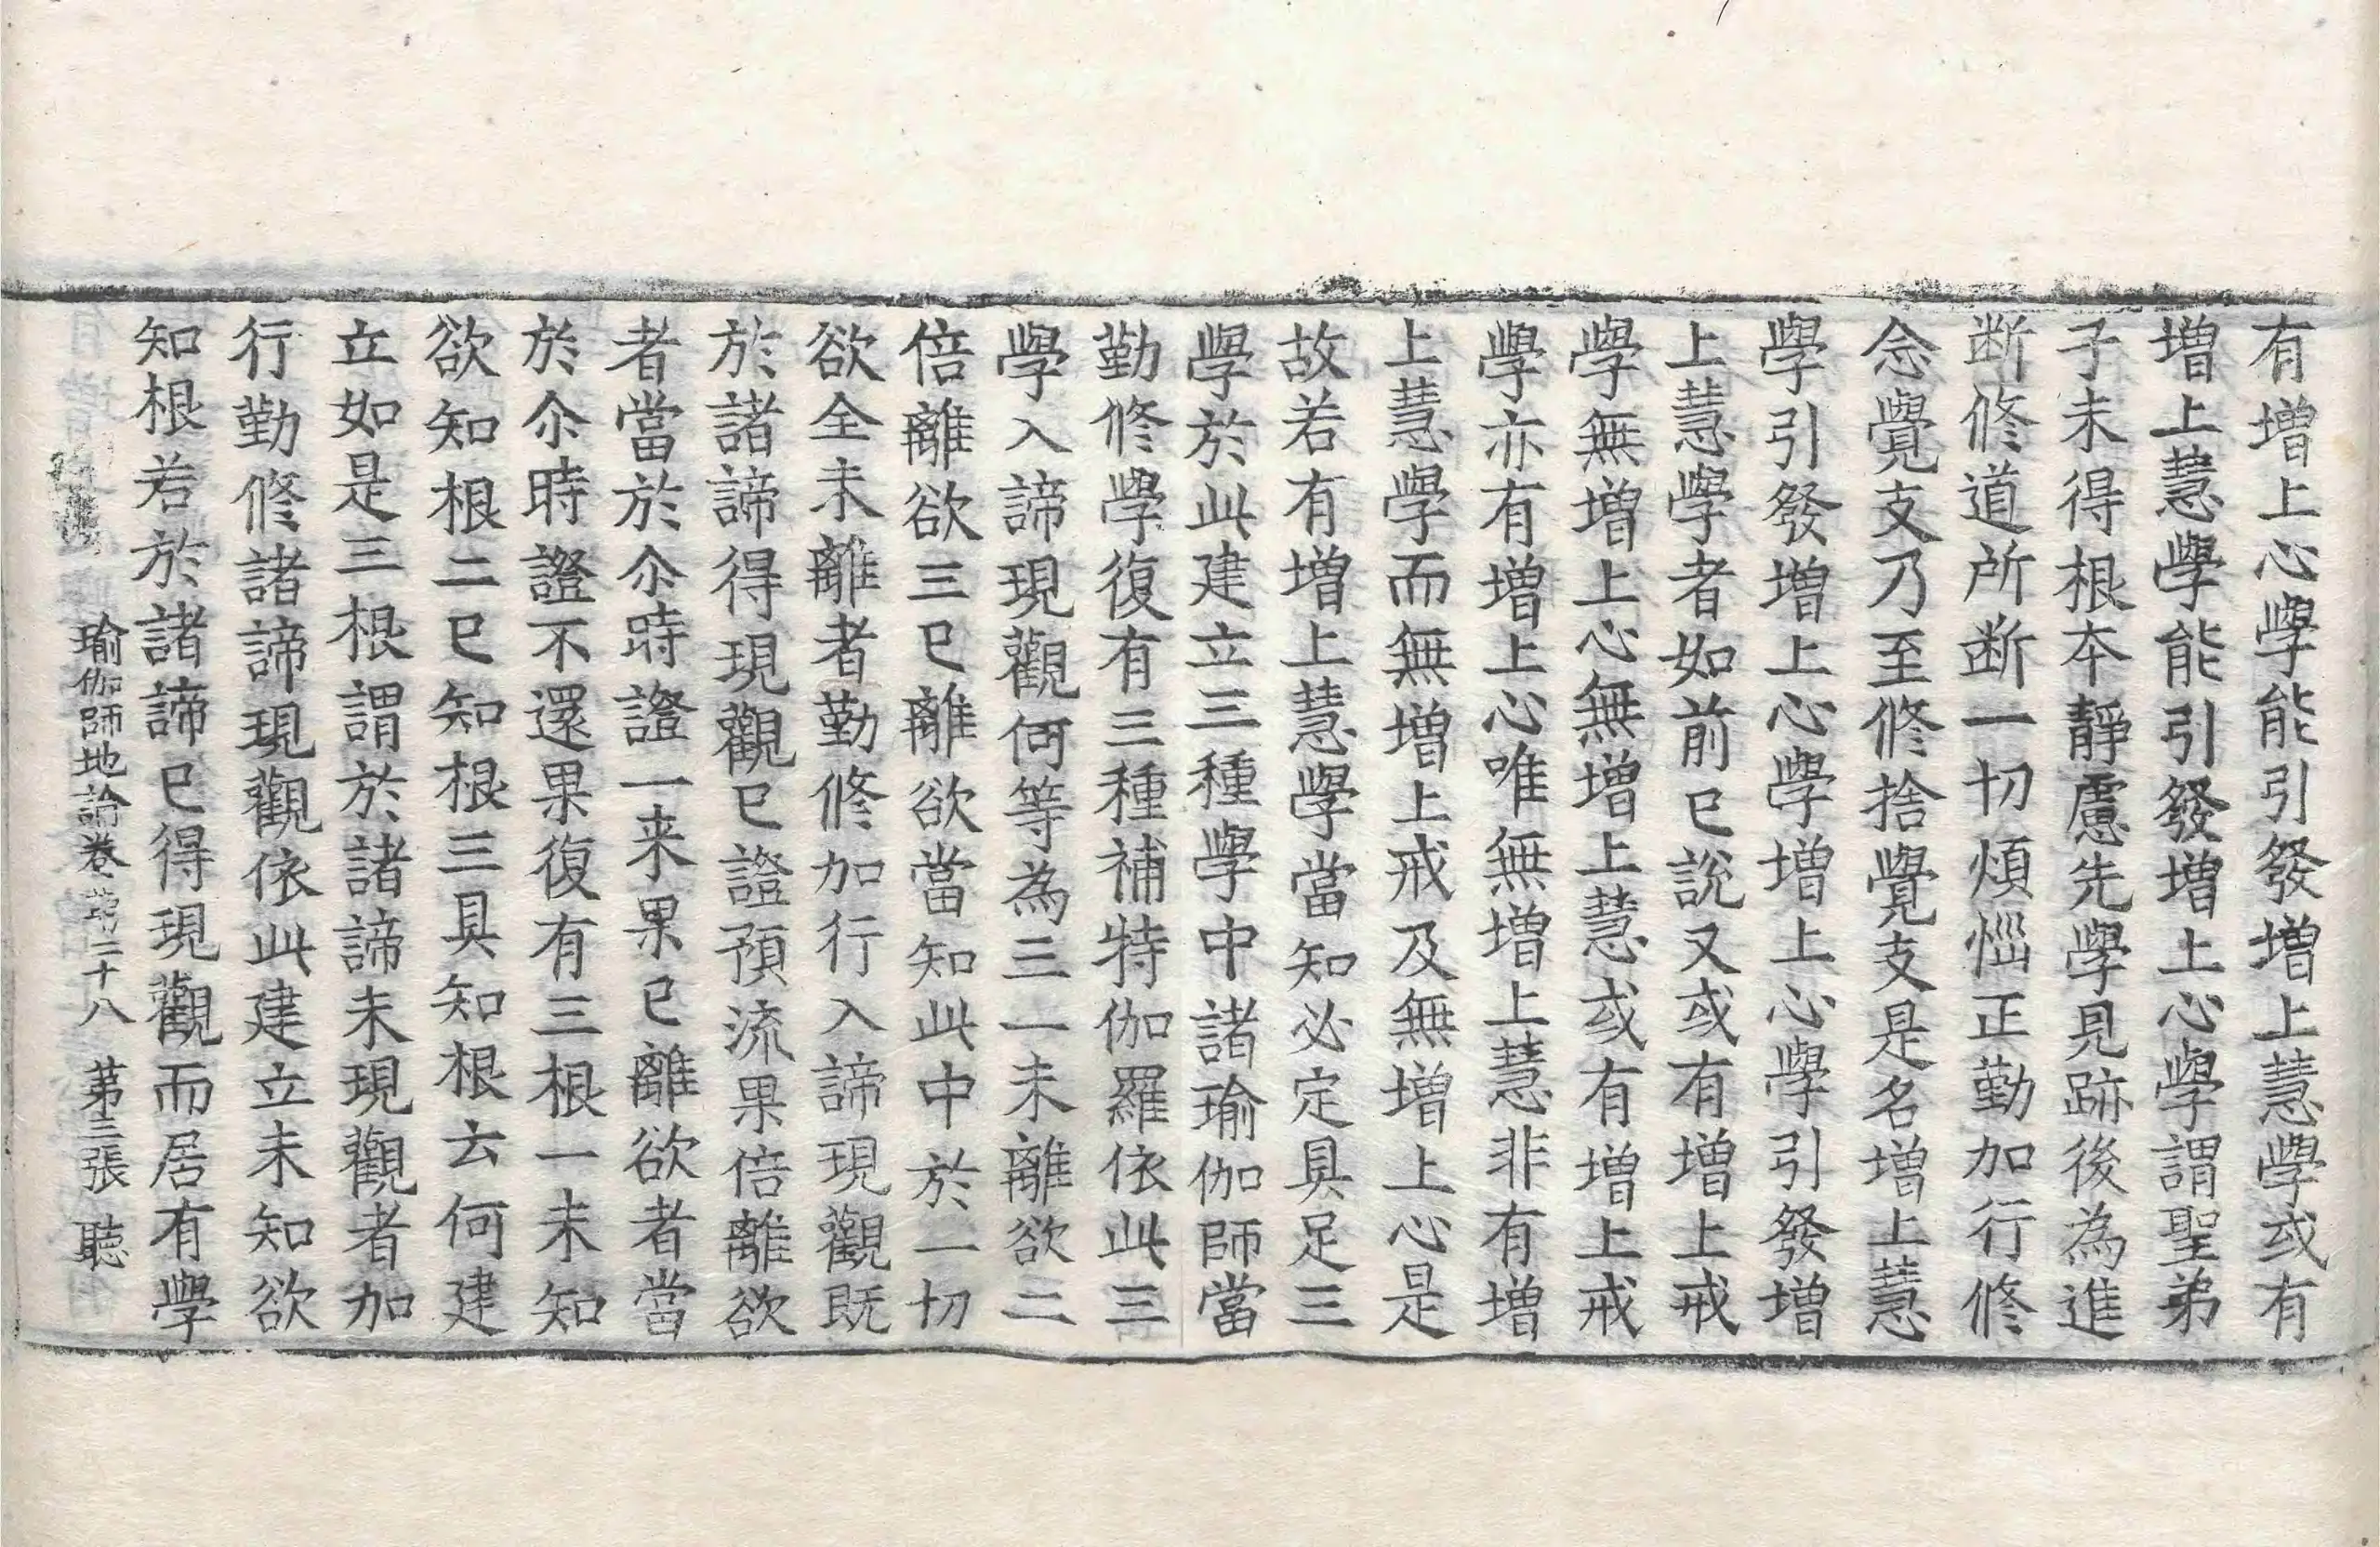 有增上心學能引發增上慧學或有
增上慧學能引發增上心學謂聖弟
子未得根本靜慮先學見跡後為進
断修道所断一切煩惱正勤加行修
念覺支乃至修捨覺支是名增上慧
學引發增上心學增上心學引發增
上慧學者如前已說又或有增上戒
學無增上心無增上慧或有增上戒
學亦有增上心唯無增上慧非有增
上慧學而無增上戒及無增上心是
故若有增上慧學當知必定具足三
學於此建立三種學中諸瑜伽師當
勤修學復有三種補特伽羅依此三
學入諦現觀何等為三一未離欲二
倍離欲三已離欲當知此中於一切
欲全未離者勤修加行入諦現觀既
於諸諦得現觀已證預流果倍離欲
者當於尒時證一来果已離欲者當
於尒時證不還果復有三根一未知
欲知根二已知根三具知根云何建
立如是三根謂於諸諦未現觀者加
行勤修諸諦現觀依此建立未知欲
知根若於諸諦已得現觀而居有學
瑜伽師地論卷第二十八　第三張　聽